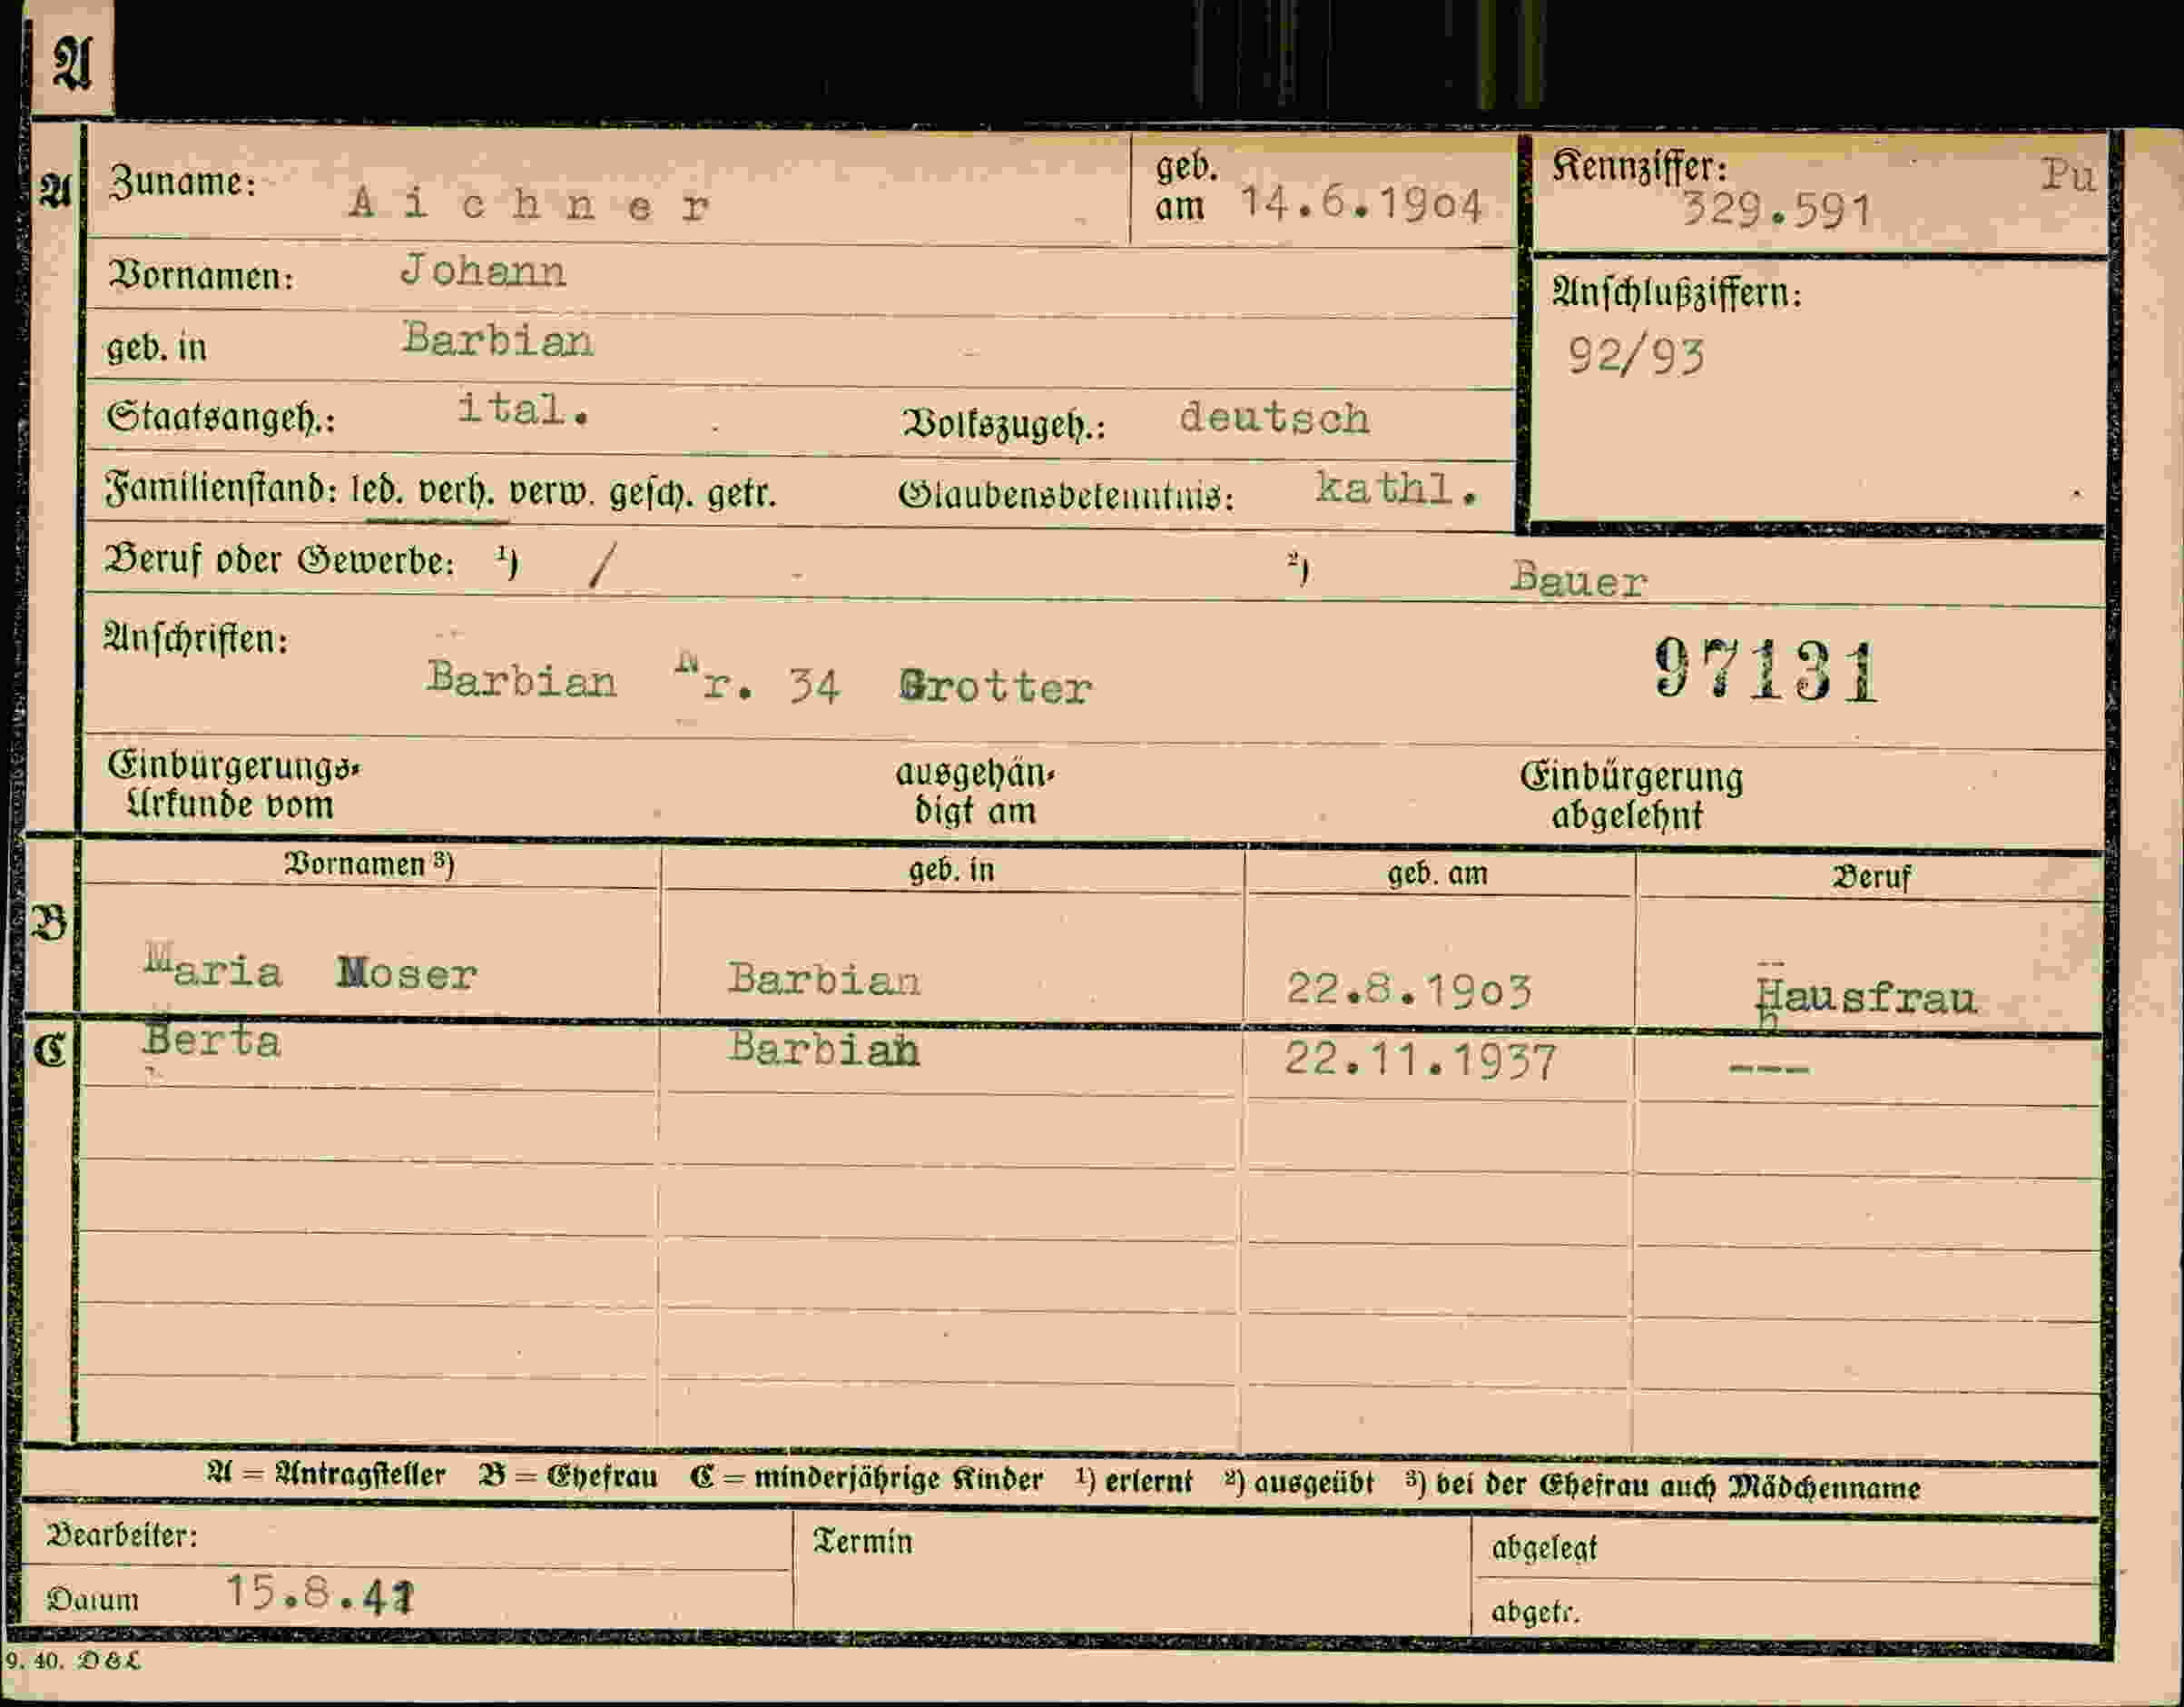 A
A Zuname: Aichner geb. am 14.6.1904 Kennziffer: 329.591 Pu
Vornamen: Johann
Anschlußziffern: 92/93
geb. in Barbian
Staatsangeh.: ital. Volkszugeh.: deutsch
Familienstand: led. verh. verw. gesch. getr. Glaubensbekenntnis: kathl.
Beruf oder Gewerbe: ¹) / ²) Bauer
Anschriften: Barbian Nr. 34 Grotter 97131
Einbürgerungs-Urkunde vom ausgehändigt am Einbürgerung abgelehnt
Vornamen ³) geb. in geb. am Beruf
B Maria Moser Barbian 22.8.1903 Hausfrau
C Berta Barbian 22.11.1937 ---
A = Antragsteller B = Ehefrau C = minderjährige Kinder ¹) erlernt ²) ausgeübt ³) bei der Ehefrau auch Mädchenname
Bearbeiter: Termin abgelegt
Datum 15.8.41 abgetr.
9. 40. D & L